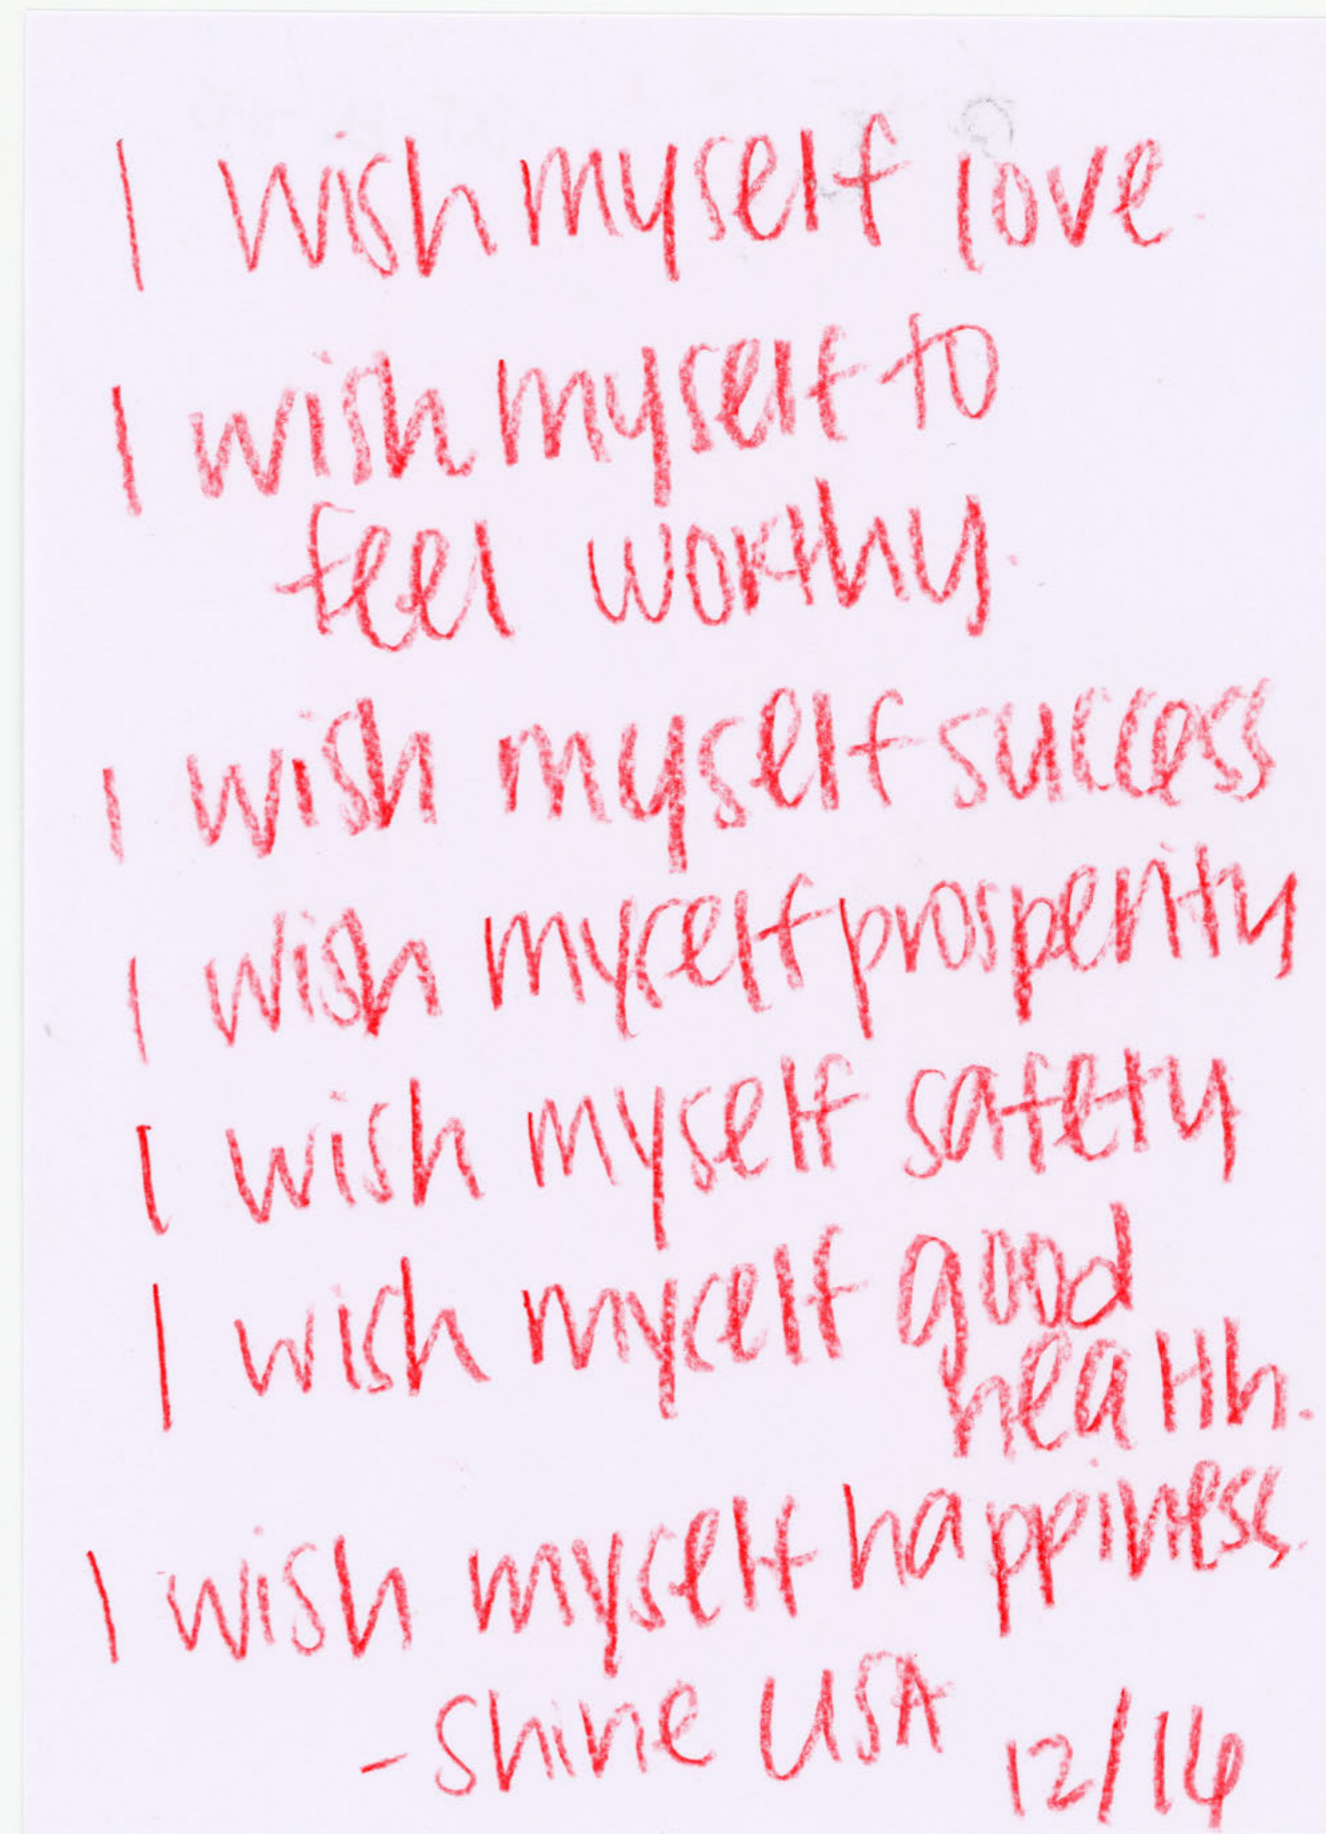 I wish myself love.
I wish myself to
feel worthy.
I wish myself success
I wish myself prosperity
I wish myself safety
I wish myself good
health.
I wish myself happiness.
- Shine USA 12/16